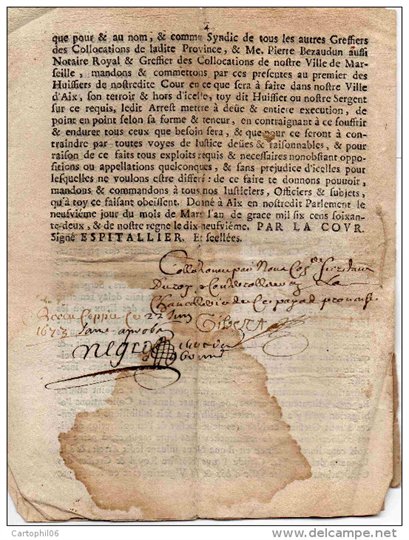 4
que pour & au nom, & comme Syndic de tous les autres Greffiers
des Collocations de ladite Province, & Me. Pierre Bezaudun aussi
Notaire Royal & Greffier des Collocations de nostre Ville de Mar-
seille, mandons & commettons par ces presentes au premier des
Huissiers de nostredite Cour en ce que sera à faire dans nostre Ville
d'Aix, son terroir & hors d'icelle, toy dit Huissier ou nostre Sergent
sur ce requis, ledit Arrest metre à deuë & entiere execution, de
point en point selon sa forme & teneur, en contraignant à ce souffrir
& endurer tous ceux que besoin sera, & que pour ce seront à con-
traindre par toutes voyes de Justice deuës & raisonnables, & pour
raison de ce faits tous exploits requis & necessaires nonobstant oppo-
sitions ou appellations quelconques, & sans prejudice d'icelles pour
lesquelles ne voulons estre differé : de ce faire te donnons pouvoir,
mandons & commandons à tous nos Iusticiers, Officiers & subjets,
qu'à toy ce faisant obeissent. Donné à Aix en nostredit Parlement le
neufviéme jour du mois de Mars l'an de grace mil six cens soixan-
te-deux, & de nostre regne le dix-neufviéme. PAR LA COVR.
Signé ESPITALLIER. Et scellées.
Collationné par Nous
Chancellerie de ce
27
1673
Negre
Cartophil06
www.delcampe.net